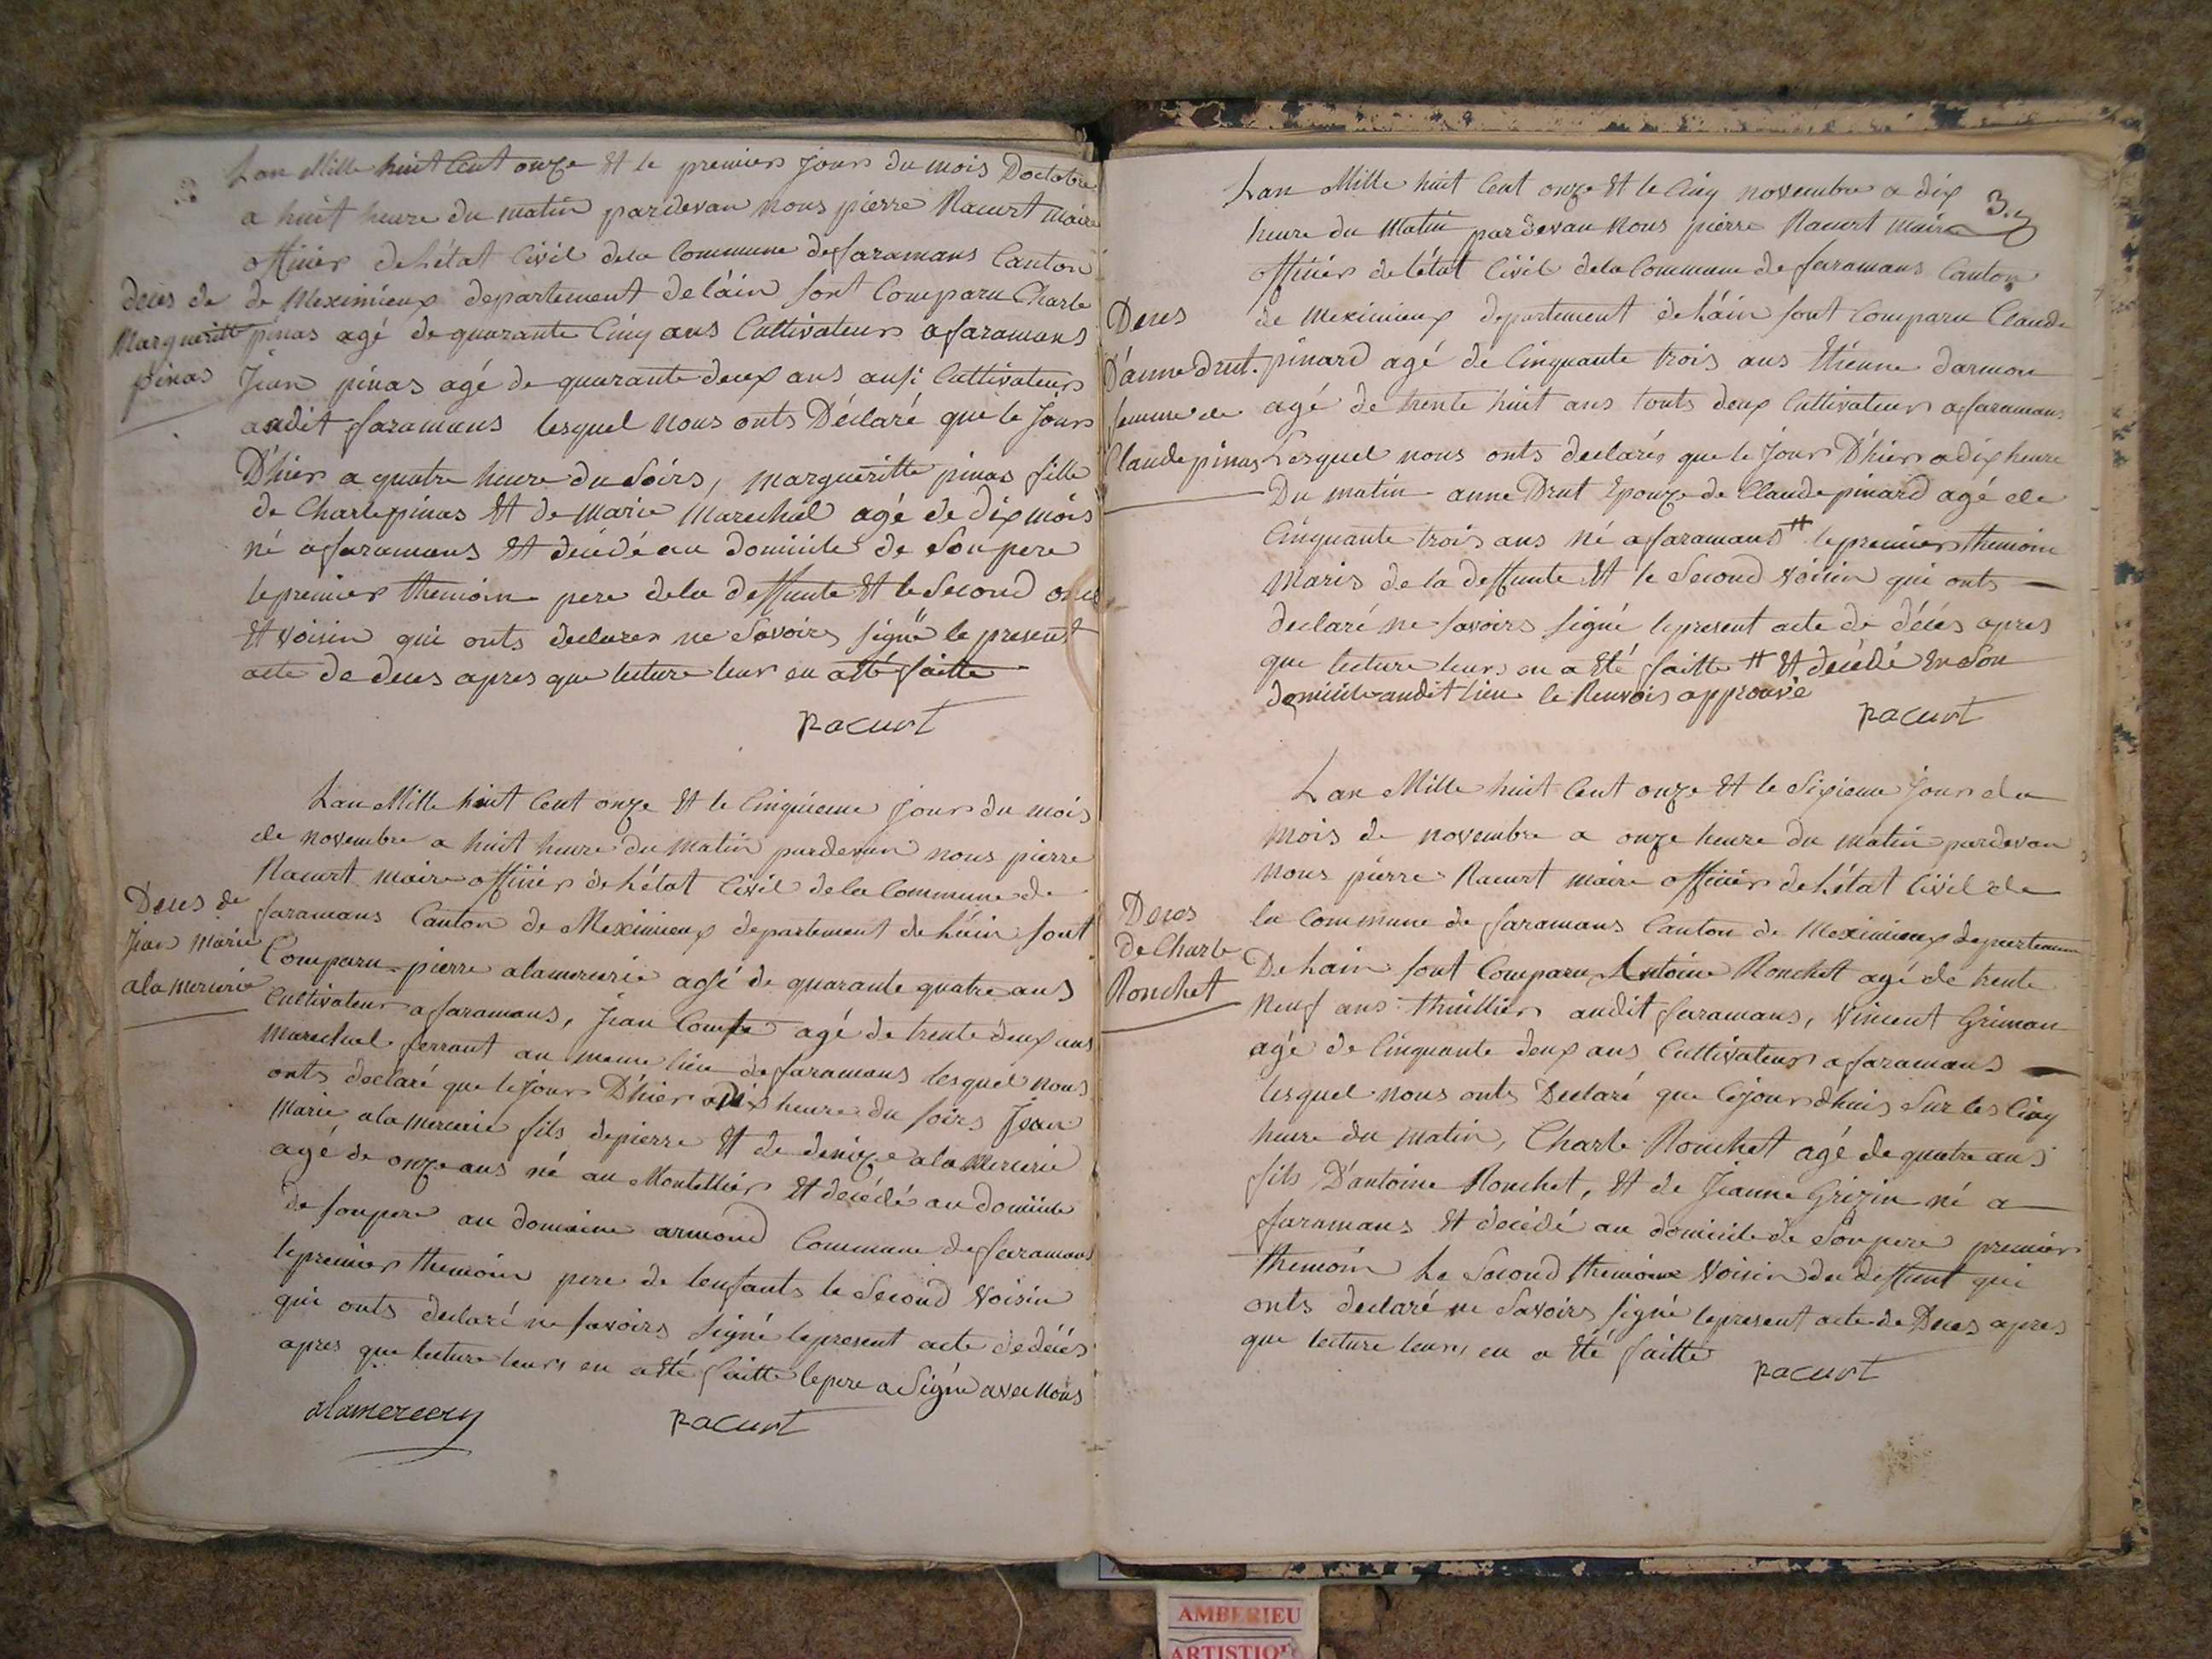 Lan Mille huit Cent onze Et le premiers jours du mois Doctobre
a huit heure du matin pardevan nous pierre Racurt maire
officier de létat Civil dela Commune de faramans Canton
de Meximieux departement de láin sont Comparu Charle
pinas agé de quarante Cinq ans Cultivateurs a faramans
Jean pinas agé de quarante deux ans ausi Cultivateurs
audit faramans lesquel nous onts Déclaré que le Jours
D'hier a quatre heure du Soirs, margueritte pinas fille
de Charle pinas Et de marie Marechal agé de dix mois
né a faramans Et décédé au domicile de Son pere
le premier themoin pere dela deffunte Et le Second
Et voisin qui onts declarer ne Savoirs signé le present
acte de deces apres que lecture leur en a Eté faitte
Racurt
deces de
Margueritt
pinas
Lan Mille huit Cent onze Et le Cinquieme jours du mois
de novembre a huit heure du matin pardevan nous pierre
Racurt maire officier de létat Civil dela Commune de
faramans Canton de Meximieux departement de láin sont
Comparu pierre alamercerie agé de quarante quatre ans
Cultivateurs a faramans, Jean Comte agé de trente deux ans
marechal ferrant au meme lieu de faramans lesquel nous
onts declaré que le jours D'hier a Dix heure du soirs Jean
Marie alamercerie fils de pierre Et de denize alamercerie
agé de onze ans né au Montellier Et décédé au domicile
de son pere au domaine armond Commune de faramans
le premier themoin pere de lenfants le Second voisin
qui onts declaré ne savoirs signé le present acte de décés
apres que lecture leurs en a Eté faitte le pere a Signé avec nous
alamercery
Racurt
Deces de
Jean Marie
alamercerie
3.
Lan Mille huit Cent onze Et le Cinq novembre a dix
heure du Matin pardevan nous pierre Racurt maire
officier de létat Civil dela Commune de faramans Canton
de Meximieux departement de láin sont Comparu Claude
pinard agé de Cinquante trois ans Etienne darmon
agé de trente huit ans touts deux Cultivateurs a faramans
Lesquel nous onts declarér que le Jours D'hier a dix heure
Du matin anne Drut Epouze de Claude pinard agé de
Cinquante trois ans né a faramans # le premier themoin
Maris de la deffunte Et le Second voisin qui onts
declaré ne savoirs signé le present acte de décés apres
que lecture leurs en a Eté faitte # Et décédé En Son
domicile audit lieu le Renvois approuvé
Racurt
Deces
D'anne drut.
femme de
Claude pinas
Lan Mille huit Cent onze Et le Sixieme jours du
mois de novembre a onze heure du matin pardevan
nous pierre Racurt maire officier de létat Civil de
la Commune de faramans Canton de Meximieux departement
De lain sont Comparu Antoine Ronchet agé de trente
neuf ans thuillier audit faramans, Vincent Griman
agé de Cinquante deux ans Cultivateurs a faramans
lesquel nous onts Declaré que Cejourdhuis Sur les Cinq
heure du matin, Charle Ronchet agé de quatre ans
fils D'antoine Ronchet, Et de Jeanne Grizin né a
faramans Et décédé au domicile de Son pere premier
themoin Le Second themoin Voisin du deffunt qui
onts declaré ne Savoirs signé le present acte de Deces apres
que lecture leurs en a Eté faitte
Racurt
Deces
De Charle
Ronchet
AMBERIEU
ARTISTIQUE